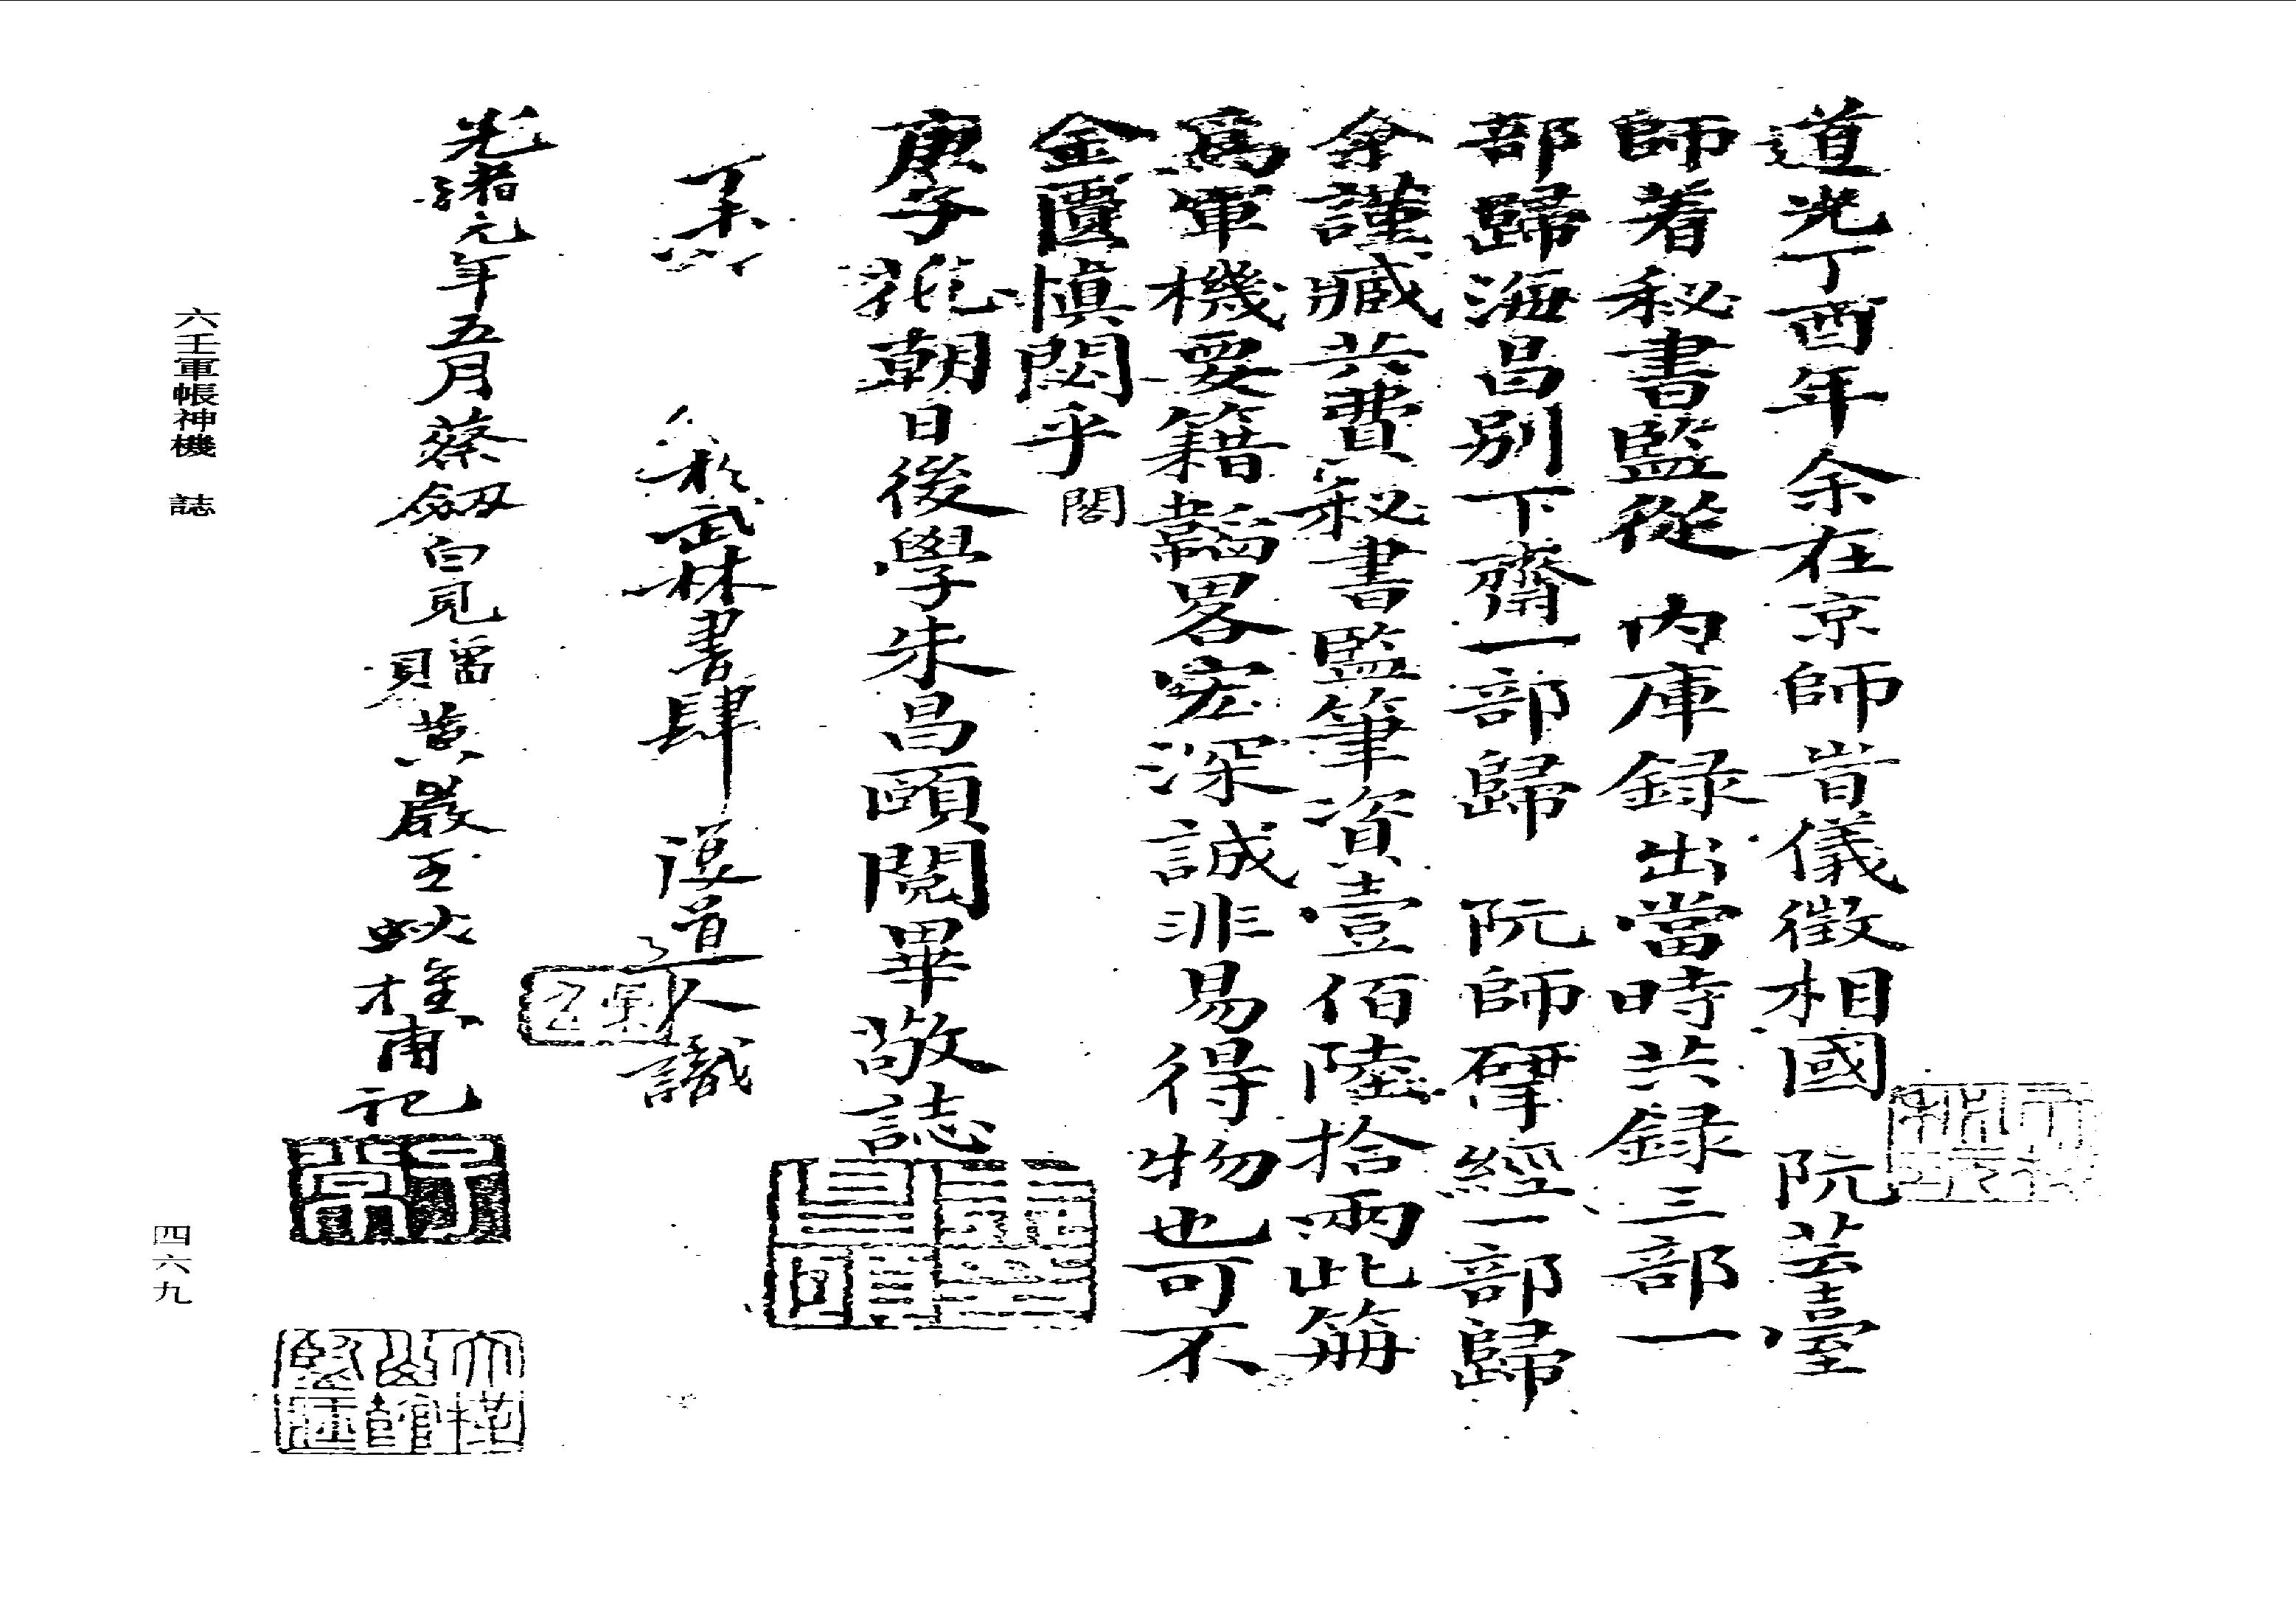 道光丁酉年余在京師昔儀徵相國　阮芸臺
師着秘書監從　內庫録出當時共録三部一
部歸海昌别下齋一部歸　阮師揅經一部歸
余謹藏共費秘書監筆資壹佰陸拾兩此册
爲軍機要籍韜畧宏深誠非易得物也可不
金匱慎閟乎
閣
庚子花朝日後學朱昌頤閱畢敬誌
丁未
於武林書肆　道人識
光緒元年五月蔡劒白兄贈黄巖王
甫記
六壬軍帳神機　誌
四六九